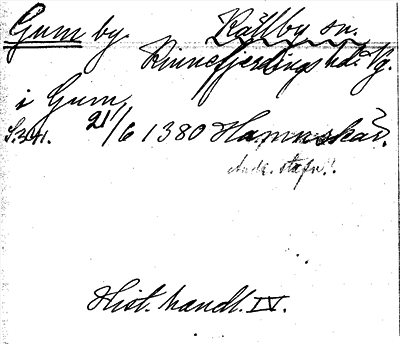 Gum by Källby sn.
Kinnefjerdings hd. Vg.
i Gum
S. 341. 21/6 1380 Hamnskär.
Andr. stafn.!
Hist. handl. IV.